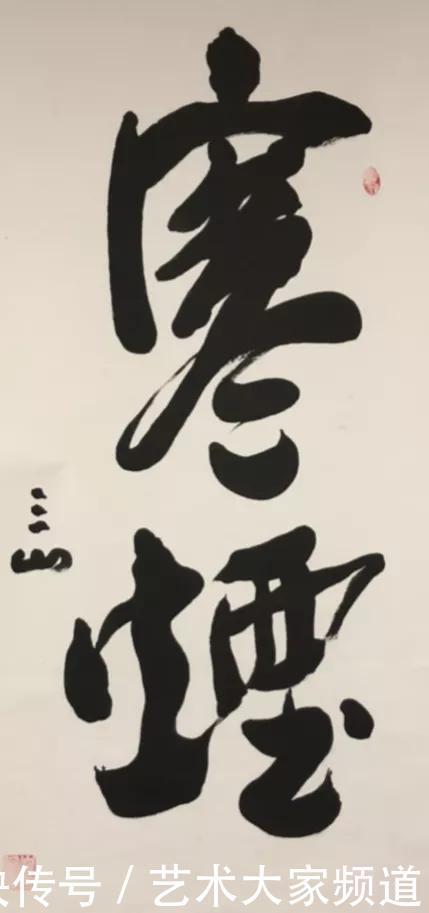 寒煙
三山
快传号 / 艺术大家频道